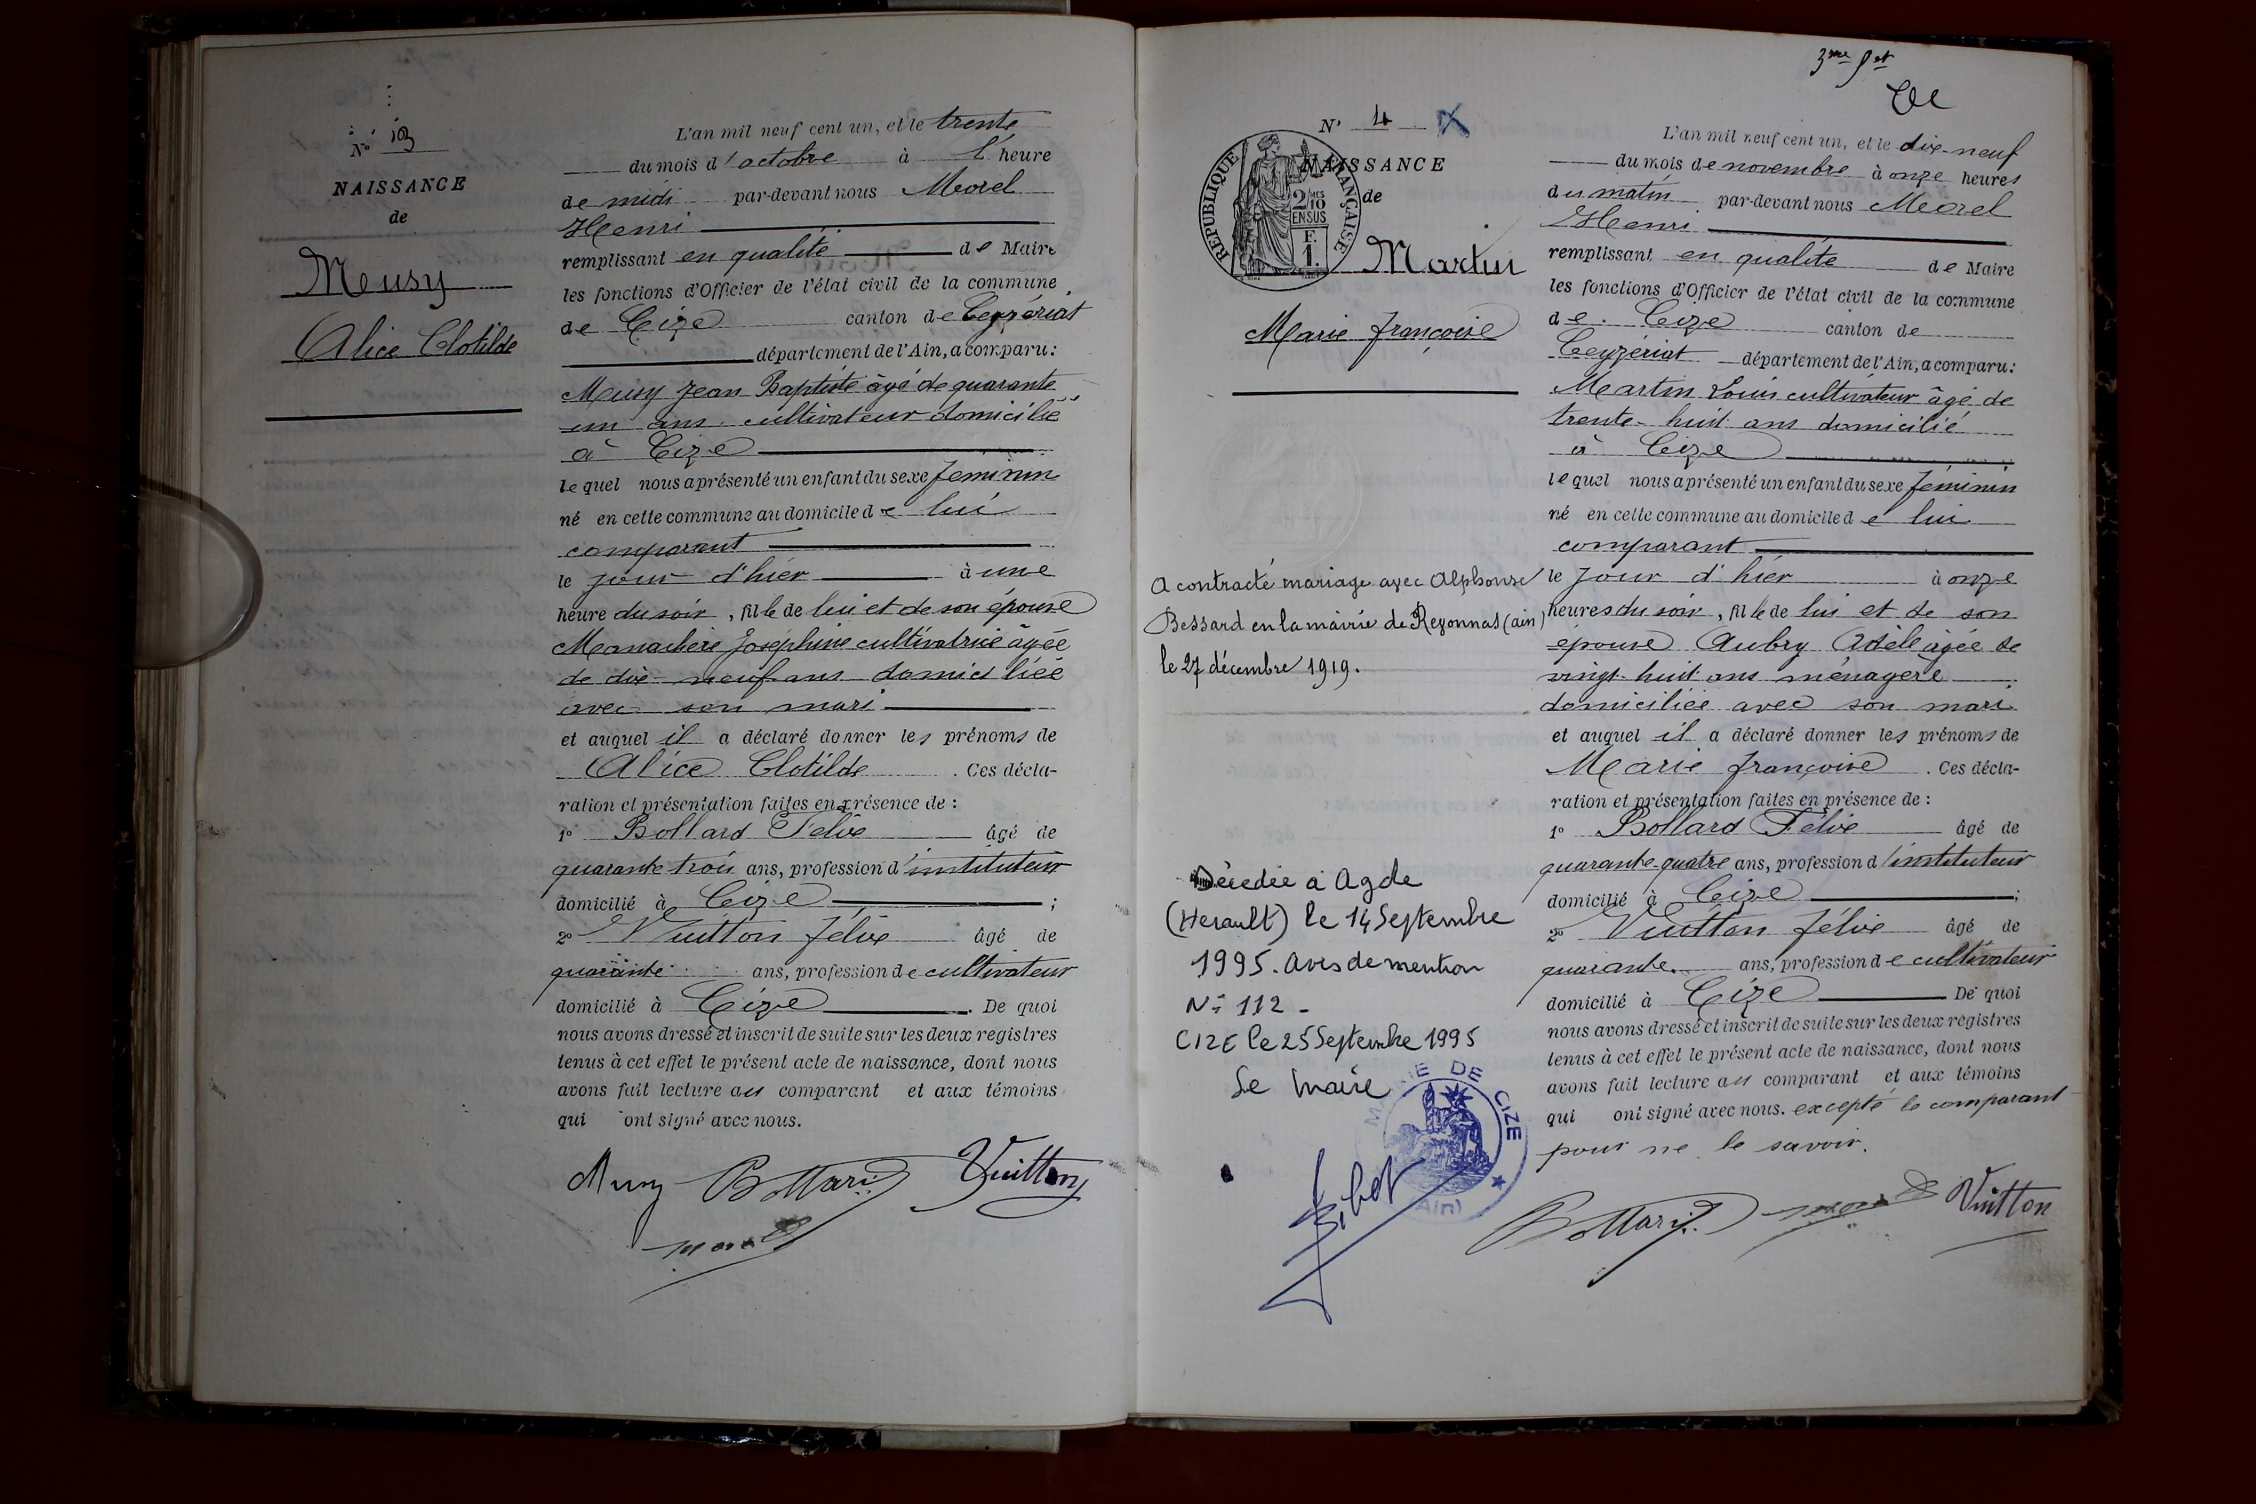 Nº 3
NAISSANCE
de
Meusy
Alice Clotilde
L'an mil neuf cent un, et le trente
du mois d'octobre à l' heure
de midi par-devant nous Morel
Henri
remplissant en qualité de Maire
les fonctions d'Officier de l'état civil de la commune
de Cize canton de Ceyzériat
département de l'Ain, a comparu:
Meusy Jean Baptiste âgé de quarante
un ans cultivateur domicilié
à Cize
lequel nous a présenté un enfant du sexe féminin
né en cette commune au domicile de lui
comparant
le jour d'hier à une
heure du soir, fille de lui et de son épouse
Joséphine cultivatrice âgée
de dix neuf ans domiciliée
avec son mari
et auquel il a déclaré donner les prénoms de
Alice Clotilde. Ces décla-
ration et présentation faites en présence de :
1º Bollard Félix âgé de
quarante trois ans, profession d'instituteur
domicilié à Cize ;
2º Vuitton Félix âgé de
quarante ans, profession de cultivateur
domicilié à Cize. De quoi
nous avons dressé et inscrit de suite sur les deux registres
tenus à cet effet le présent acte de naissance, dont nous
avons fait lecture au comparant et aux témoins
qui ont signé avec nous.
Meusy Bollard Vuitton
Morel
3me
Nº 4
NAISSANCE
de
REPUBLIQUE FRANÇAISE
2/10 MES
EN SUS
F.
1.
Martin
Marie Françoise
A contracté mariage avec Alphonse
Bessard en la mairie de Reyonnas (ain)
le 27 décembre 1919.
Décédée à Agde
(Herault) le 14 Septembre
1995. Avis de mention
Nº 112 -
CIZE le 25 Septembre 1995
Le Maire
MAIRIE DE CIZE
(Ain)
L'an mil neuf cent un, et le dix-neuf
du mois de novembre à onze heures
du matin par-devant nous Morel
Henri
remplissant en qualité de Maire
les fonctions d'Officier de l'état civil de la commune
de Cize canton de
Ceyzériat département de l'Ain, a comparu:
Martin Louis cultivateur âgé de
trente-huit ans domicilié
à Cize
lequel nous a présenté un enfant du sexe féminin
né en cette commune au domicile de lui
comparant
le jour d'hier à onze
heures du soir, fille de lui et de son
épouse Aubry Adèle âgée de
vingt-huit ans ménagère
domiciliée avec son mari
et auquel il a déclaré donner les prénoms de
Marie Françoise. Ces décla-
ration et présentation faites en présence de :
1º Bollard Félix âgé de
quarante-quatre ans, profession d'instituteur
domicilié à Cize ;
2º Vuitton Félix âgé de
quarante ans, profession de cultivateur
domicilié à Cize De quoi
nous avons dressé et inscrit de suite sur les deux registres
tenus à cet effet le présent acte de naissance, dont nous
avons fait lecture au comparant et aux témoins
qui ont signé avec nous. excepté le comparant
pour ne le savoir.
Bollard Morel Vuitton